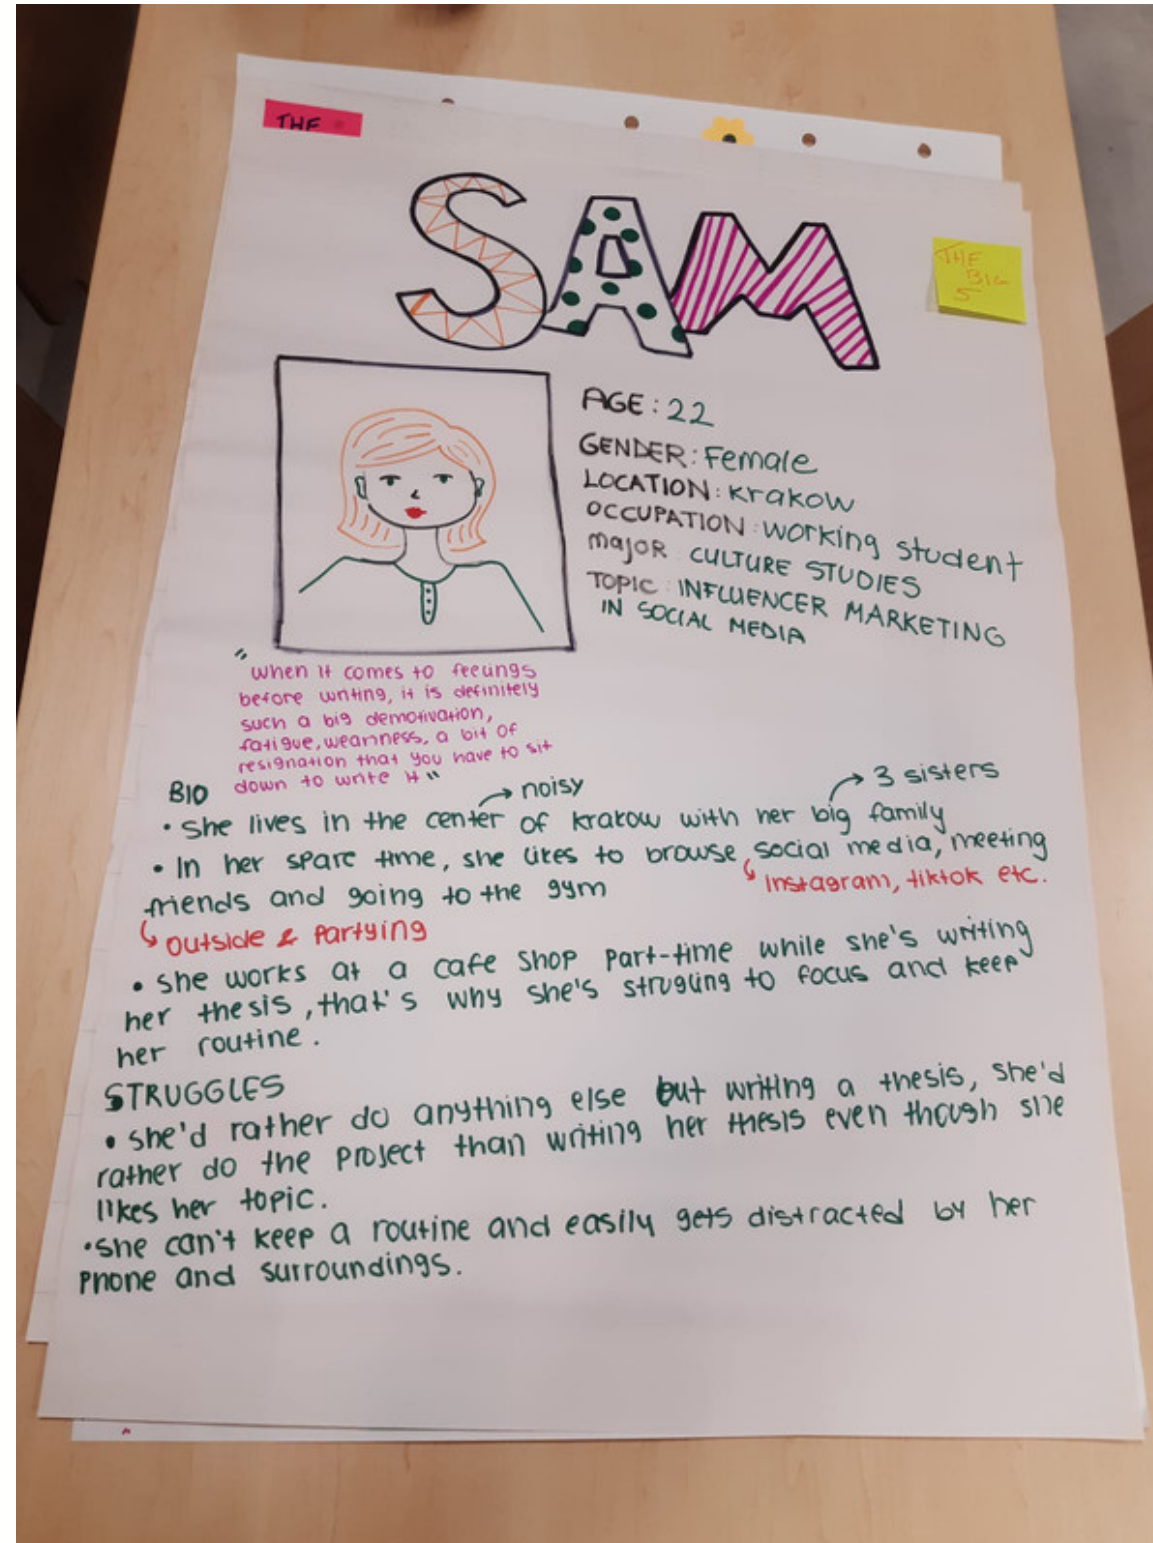 THE
SAM
THE
BIG
5
AGE: 22
GENDER: Female
LOCATION: Krakow
OCCUPATION: working student
major: CULTURE STUDIES
TOPIC: INFLUENCER MARKETING
IN SOCIAL MEDIA
"when it comes to feelings
before writing, it is definitely
such a big demotivation,
fatigue, weariness, a bit of
resignation that you have to sit
down to write it"
BIO
noisy
3 sisters
• she lives in the center of krakow with her big family
• In her spare time, she likes to browse social media, meeting
instagram, tiktok etc.
friends and going to the gym
outside & Partying
• she works at a cafe shop part-time while she's writing
her thesis, that's why she's strugling to focus and keep
her routine.
STRUGGLES
• she'd rather do anything else but writing a thesis, she'd
rather do the project than writing her thesis even though she
likes her topic.
• she can't keep a routine and easily gets distracted by her
phone and surroundings.